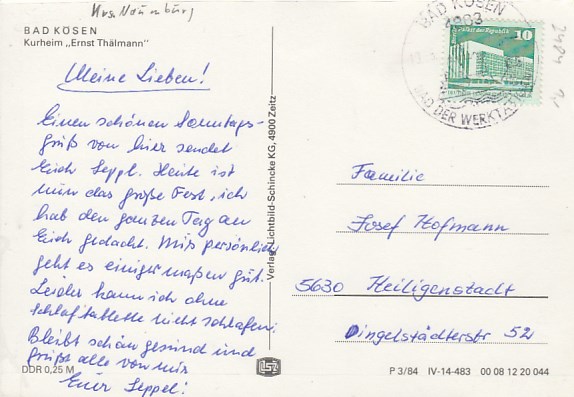 Krs. Naumburg
BAD KÖSEN
Kurheim „Ernst Thälmann"
Meine Lieben!
Einen schönen Sonntags-
gruß von hier sendet
Euch Seppl. Heute ist
nun das große Fest, ich
hab den ganzen Tag an
Euch gedacht. Mir persönlich
geht es einiger maßen gut.
Leider kann ich ohne
Schlaftablette nicht schlafen.
Bleibt schön gesund und
grüßt alle von mir
Euer Seppel!
DDR 0,25 M
Verlag Lichtbild-Schincke KG, 4900 Zeitz
BAD KÖSEN
4803
BAD DER WERKTÄTIGEN
10
Palast der Republik
Familie
Josef Hofmann
5630 Heiligenstadt
Dingelstädterstr 52
P 3/84 IV-14-483 00 08 12 20 044